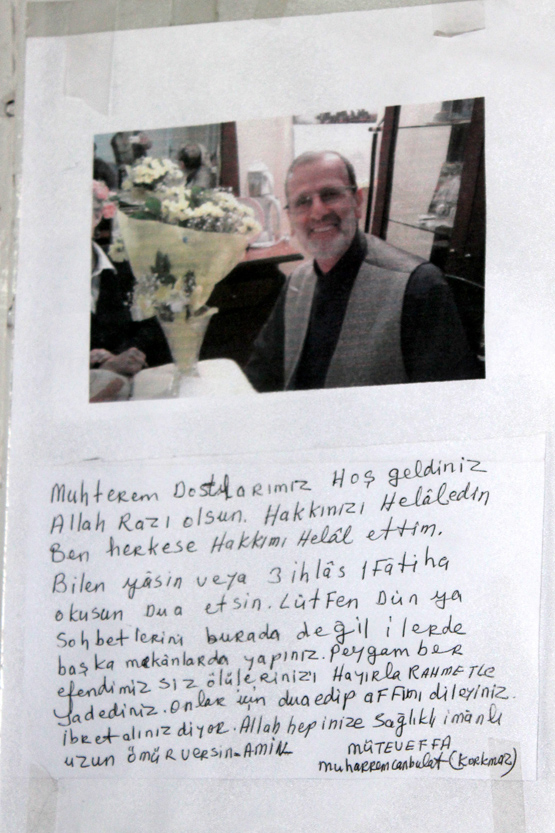 Muhterem Dostlarımız Hoş geldiniz
Allah Razı olsun. Hakkınızı Helâledin
Ben herkese Hakkımı Helâl ettim.
Bilen yâsin veya 3 ihlâs 1 Fâtiha
okusun Dua etsin. Lütfen Dün ya
Sohbetlerini burada değil ilerde
başka mekânlarda yapınız. Peygamber
efendimiz siz ölülerinizi Hayırla RAHMETLE
Yadediniz. onlar için dua edip affını dileyiniz.
ibret alınız diyor. Allah hepinize Sağlıklı imânlı
uzun ömür versin-AMİN
MÜTEVEFFA
muharremcanbulat (Korkmaz)